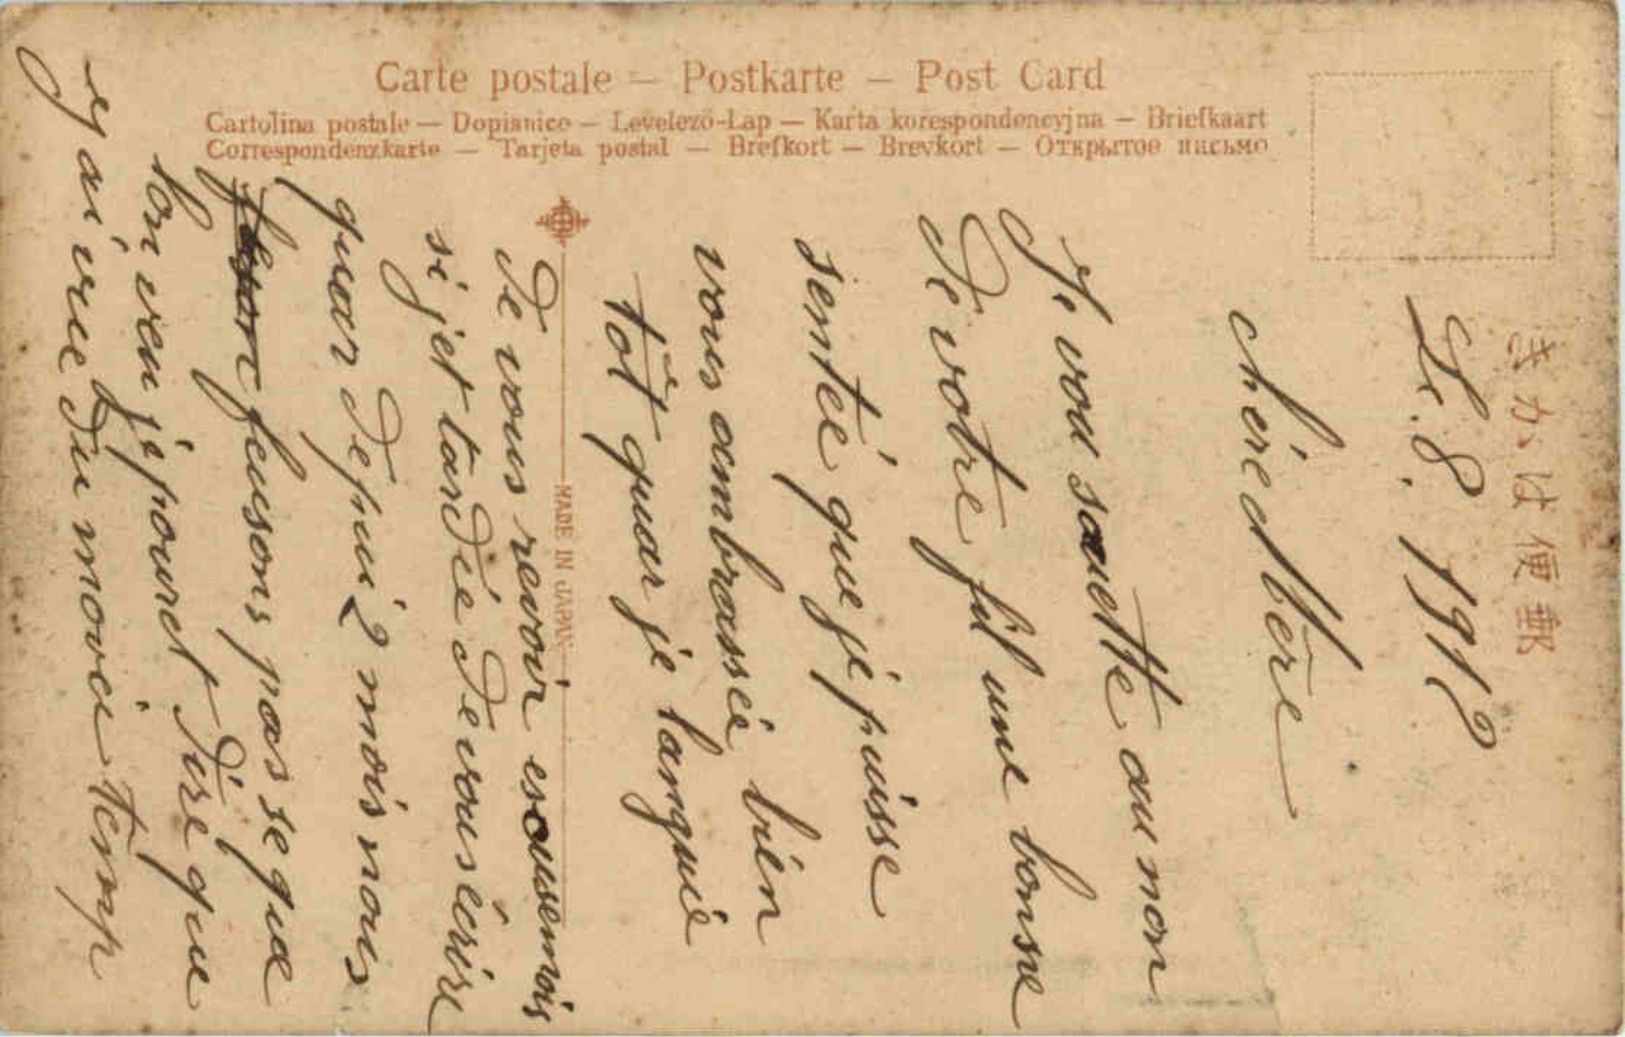 Carte postale — Postkarte — Post Card
Cartolina postale — Dopisnice — Levelező-Lap — Karta korespondencyjna — Briefkaart
Correspondenzkarte — Tarjeta postal — Brefkort — Brevkort — Открытое письмо
きかは便郵
MADE IN JAPAN
8. 1912
chère Mère
Je vou sauette au non
de votre fil une bonne
sentée que je puisse
vous ambrassée bien
tôt quar je languie
de vous revoir escusemois
si jet tardée de vous écrire
quar depui 2 mois nous
feusons pas se que
lon veu je pouret dire que
g ai vue du movée temp